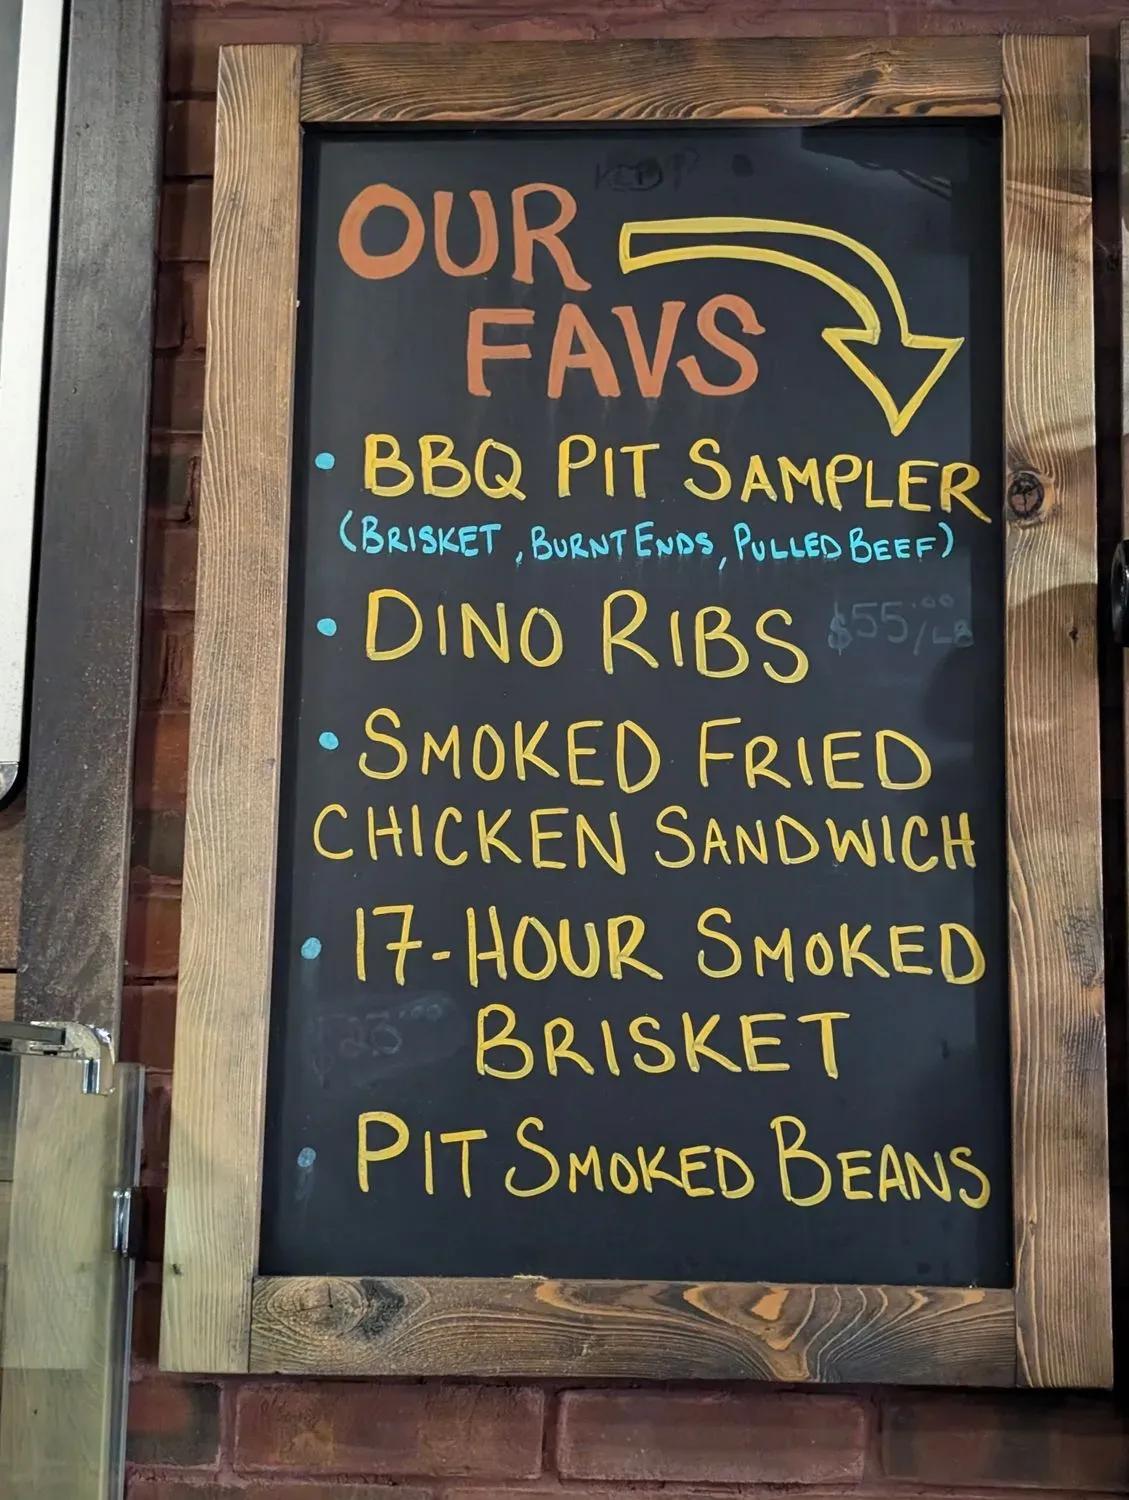 OUR
FAVS
• BBQ PIT SAMPLER
(BRISKET, BURNT ENDS, PULLED BEEF)
• DINO RIBS $55.00/LB
• SMOKED FRIED
CHICKEN SANDWICH
• 17-HOUR SMOKED
BRISKET
• PIT SMOKED BEANS